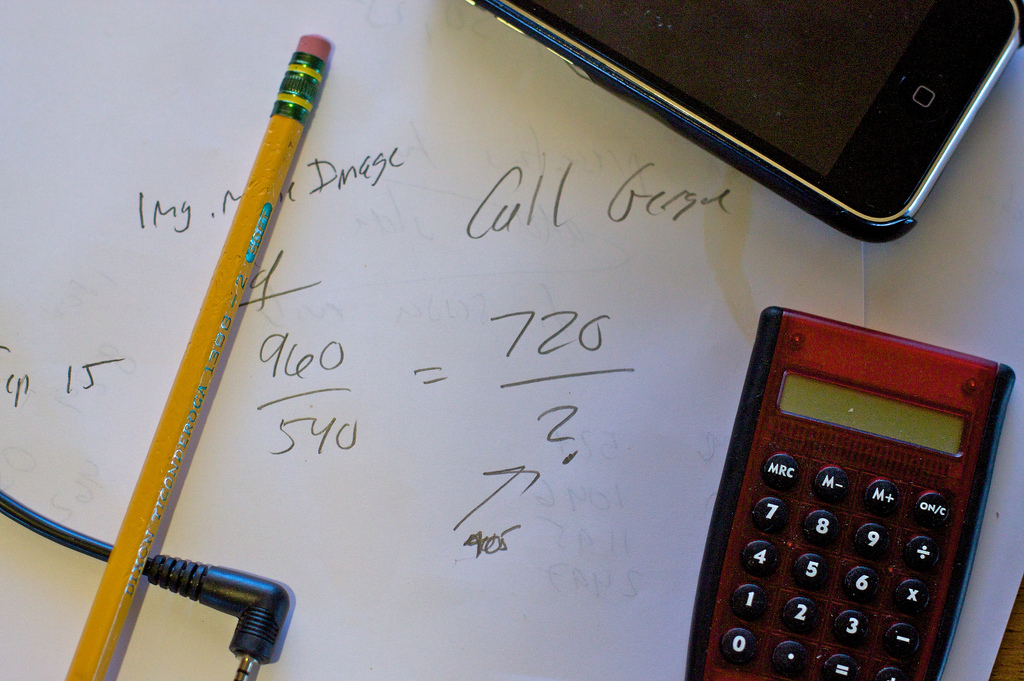 Img . Image
Call George
960 = 720
540 ?
15
405
DIXON TICONDEROGA 1388-2
MRC M- M+ ON/C
7 8 9 ÷
4 5 6 x
1 2 3 −
0 . =